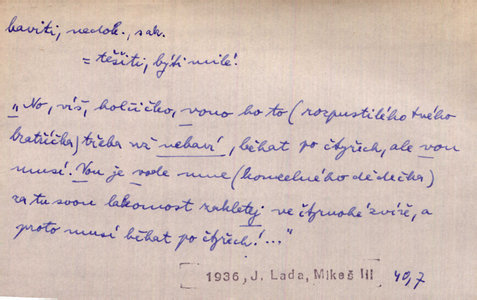 baviti, nedok., sak.
= těšiti, býti milé.
„No, víš, holčičko, vono ho to (rozpustilého tvého
bratříčka) třeba už nebaví, běhat po čtyřech, ale von
musí. Von je vode mne (kouzelného dědečka)
za tu svou lakomost zakletej ve čtyrnohé zvíře, a
proto musí běhat po čtyřech!..."
1936, J. Lada, Mikeš III 40,7